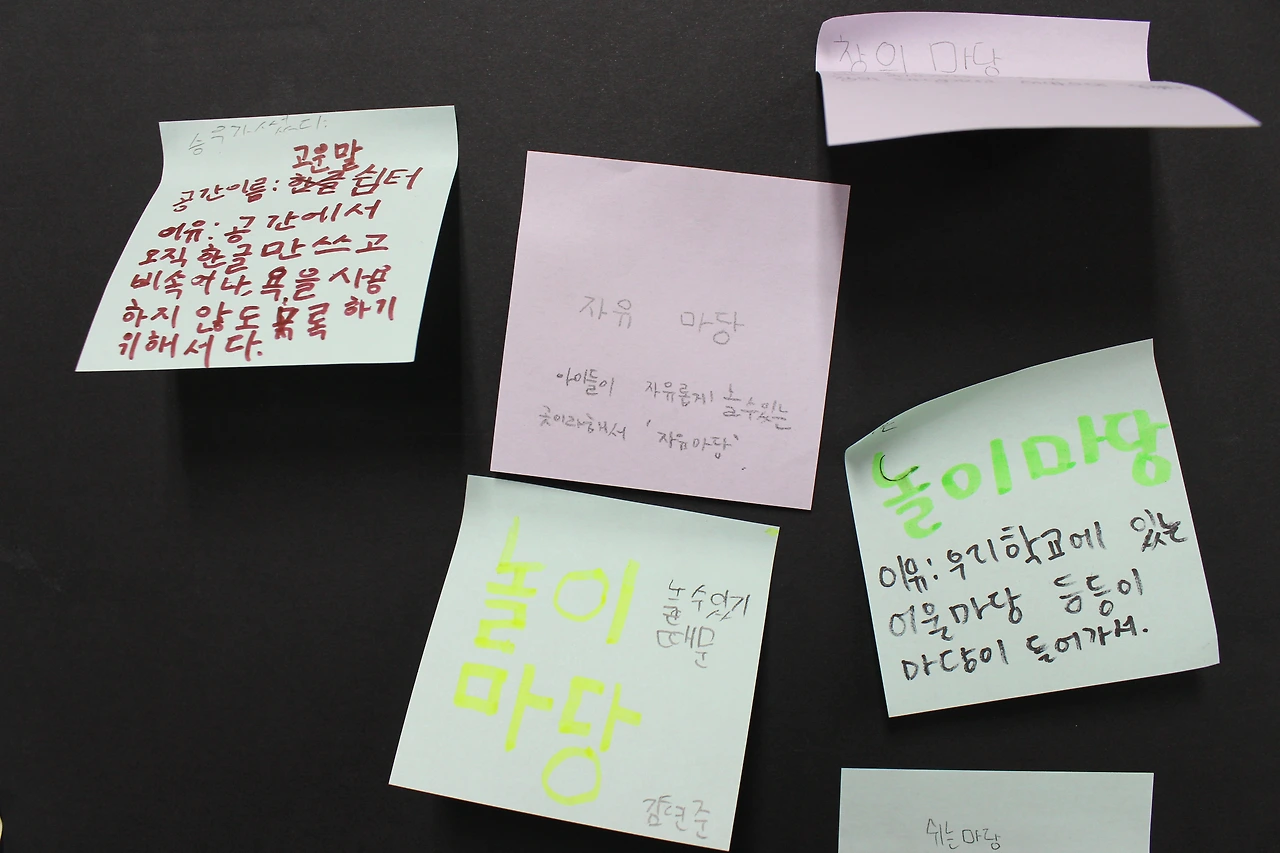 승욱가 썼다.
고운말
공간이름: 한글 쉼터
이유: 공간에서
오직 한글만 쓰고
비속어나, 욕을 사용
하지 않도록 하기
위해서다.
창의 마당
자유 마당
아이들이 자유롭게 놀수있는
곳이라해서 '자유마당'.
놀이마당
이유: 우리학교에 있는
어울마당 등등이
마당이 들어가서.
놀이
마당
놀수있기
때문
김연준
쉬는마당